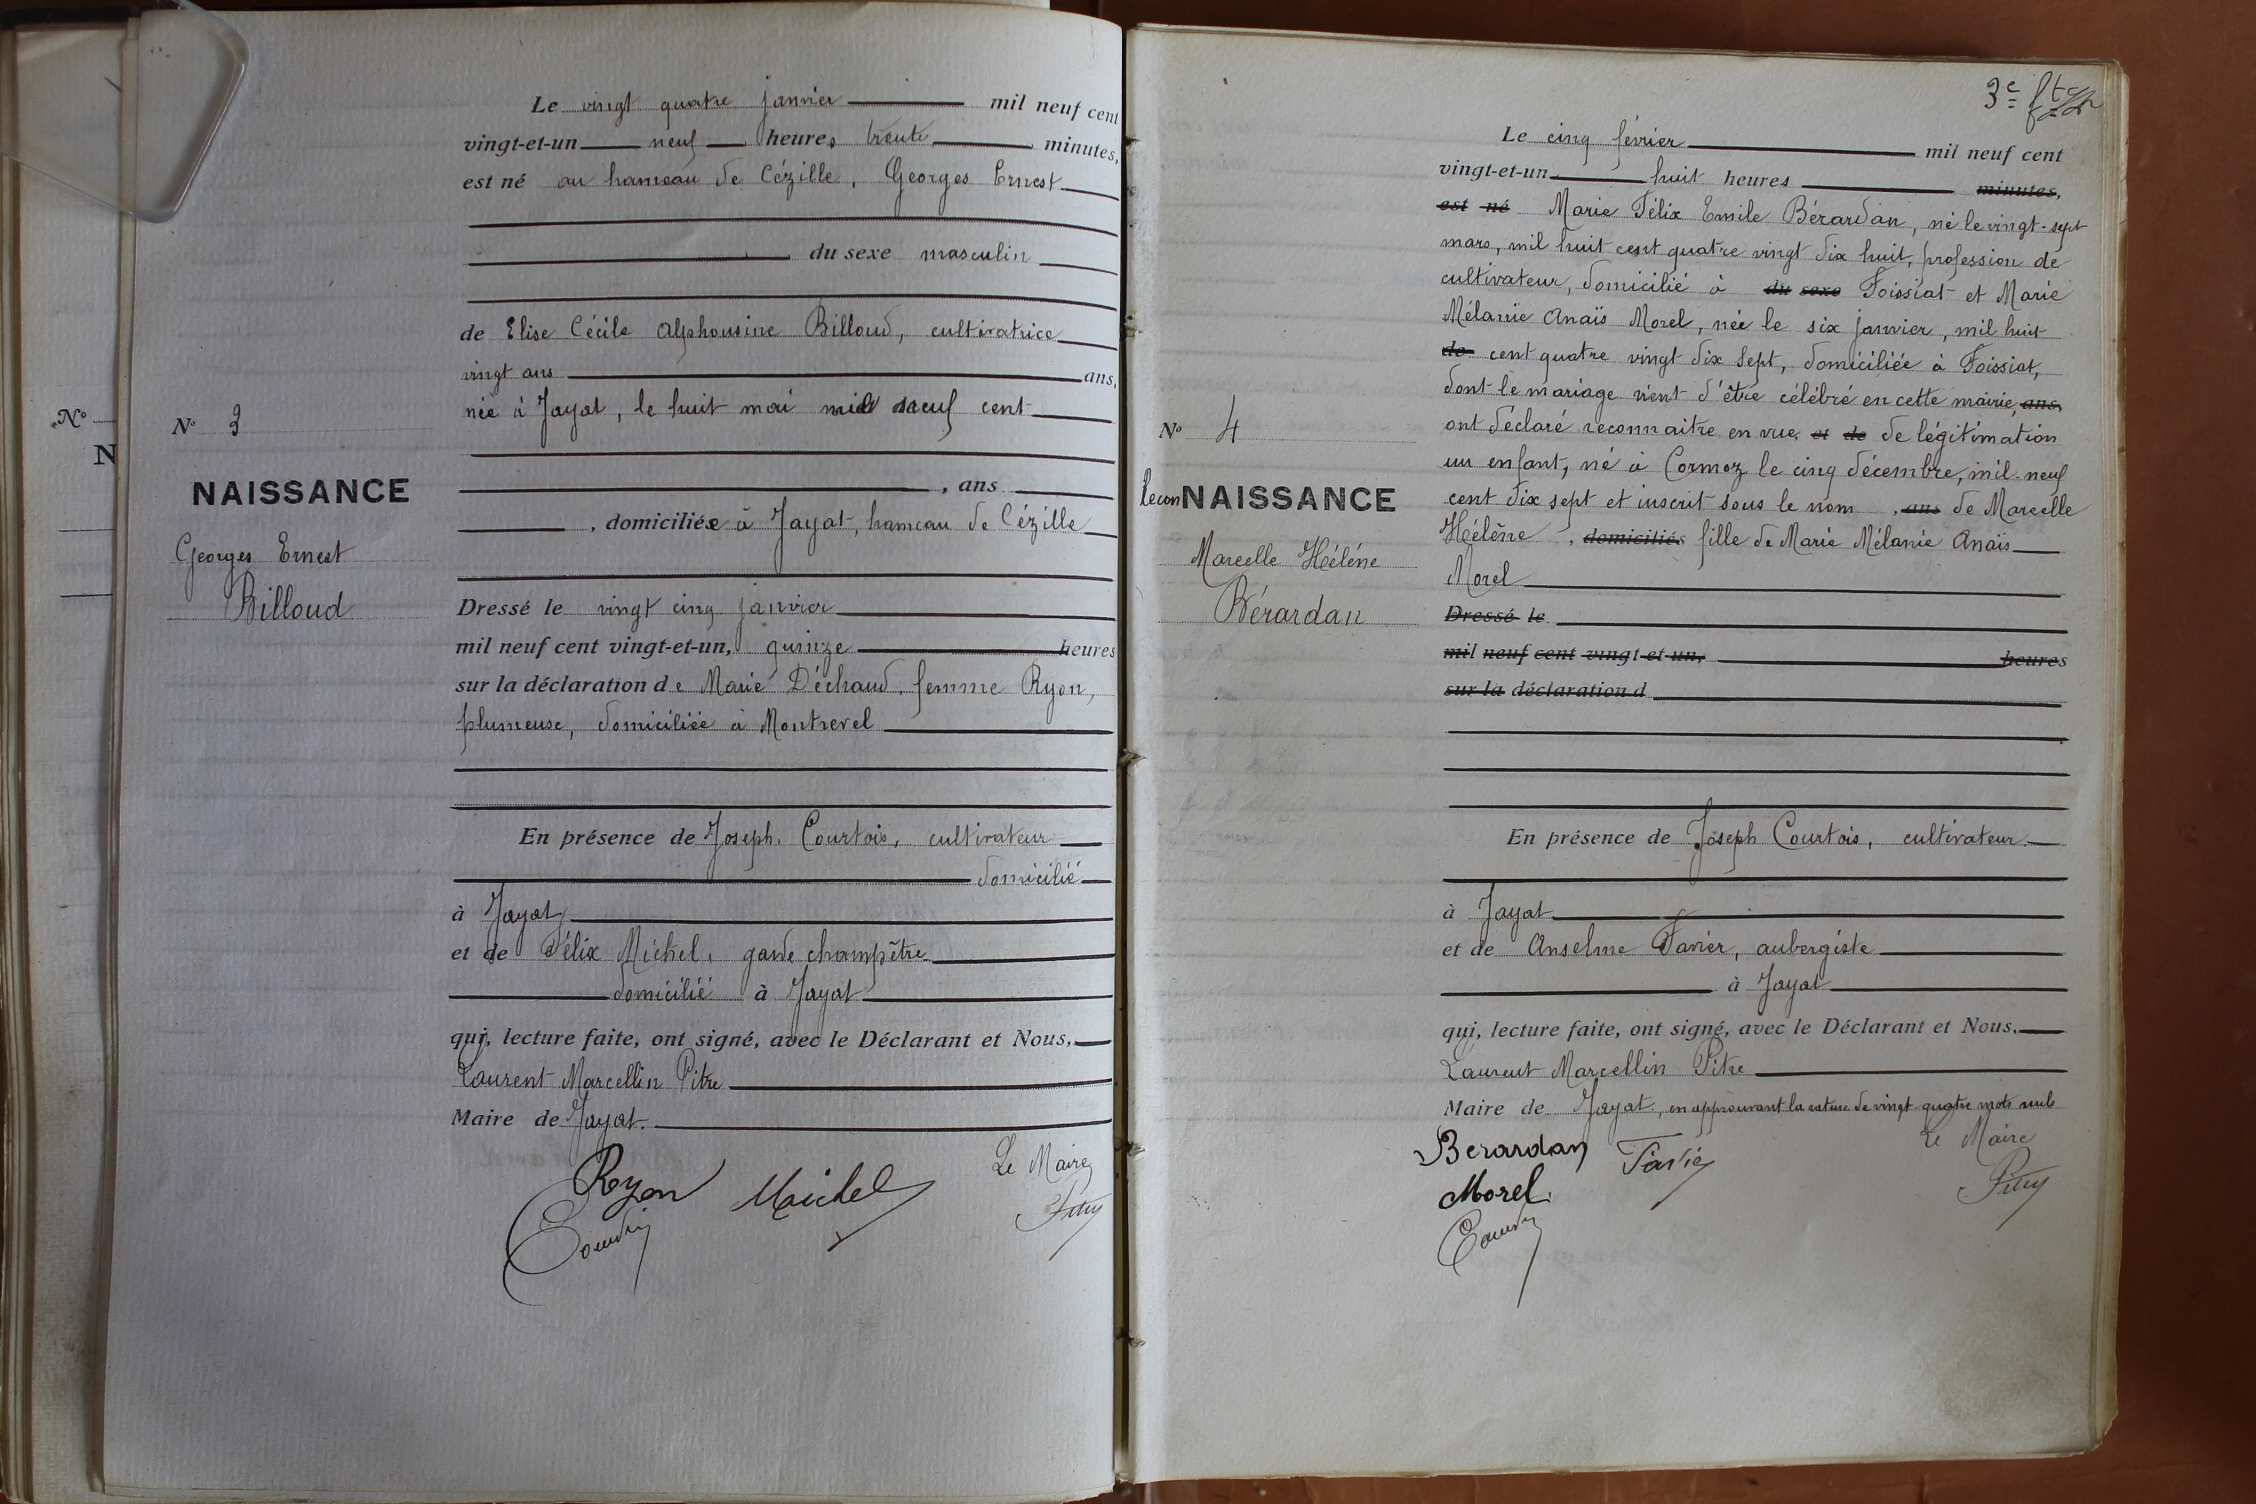 N°
N
N° 3
NAISSANCE
Georges Ernest
Billoud
Le vingt quatre janvier mil neuf cent
vingt-et-un neuf heures trente minutes,
est né au hameau de Cézille, Georges Ernest
du sexe masculin
de Elise Cécile Alphonsine Billoud, cultivatrice
vingt ans ans,
née à Jayat, le huit mai mil neuf cent
, ans
, domiciliée à Jayat, hameau de Cézille
Dressé le vingt cinq janvier
mil neuf cent vingt-et-un, quinze heures
sur la déclaration de Marie Déchaud, femme Ryon,
plumeuse, domiciliée à Montrevel
En présence de Joseph Courtois, cultivateur
domicilié
à Jayat
et de Félix Michel, garde champêtre
domicilié à Jayat
qui, lecture faite, ont signé, avec le Déclarant et Nous,
Laurent Marcellin Pitre
Maire de Jayat.
Le Maire
Ryon Michel
3e ft
N° 4
Recon NAISSANCE
Marcelle Héléne
Bérardan
Le cinq février mil neuf cent
vingt-et-un huit heures minutes,
est né Marie Félix Emile Bérardan, né le vingt-sept
mars, mil huit cent quatre vingt dix huit, profession de
cultivateur, domicilié à du sexe Foissiat et Marie
Mélanie Anaïs Morel, née le six janvier, mil huit
de cent quatre vingt dix sept, domiciliée à Foissiat,
dont le mariage vient d'être célébré en cette mairie, ans,
ont déclaré reconnaitre en vue et de de légitimation
un enfant, né à Cormoz le cinq décembre, mil neuf
cent dix sept et inscrit sous le nom , ans de Marcelle
Hélène , domiciliés fille de Marie Mélanie Anaïs
Morel
Dressé le
mil neuf cent vingt-et-un, heures
sur la déclaration d
En présence de Joseph Courtois, cultivateur
à Jayat
et de Anselme Favier, aubergiste
à Jayat
qui, lecture faite, ont signé, avec le Déclarant et Nous,
Laurent Marcellin Pitre
Maire de Jayat, en approuvant la rature de vingt quatre mots nuls
Le Maire
Berardan Favier
Morel